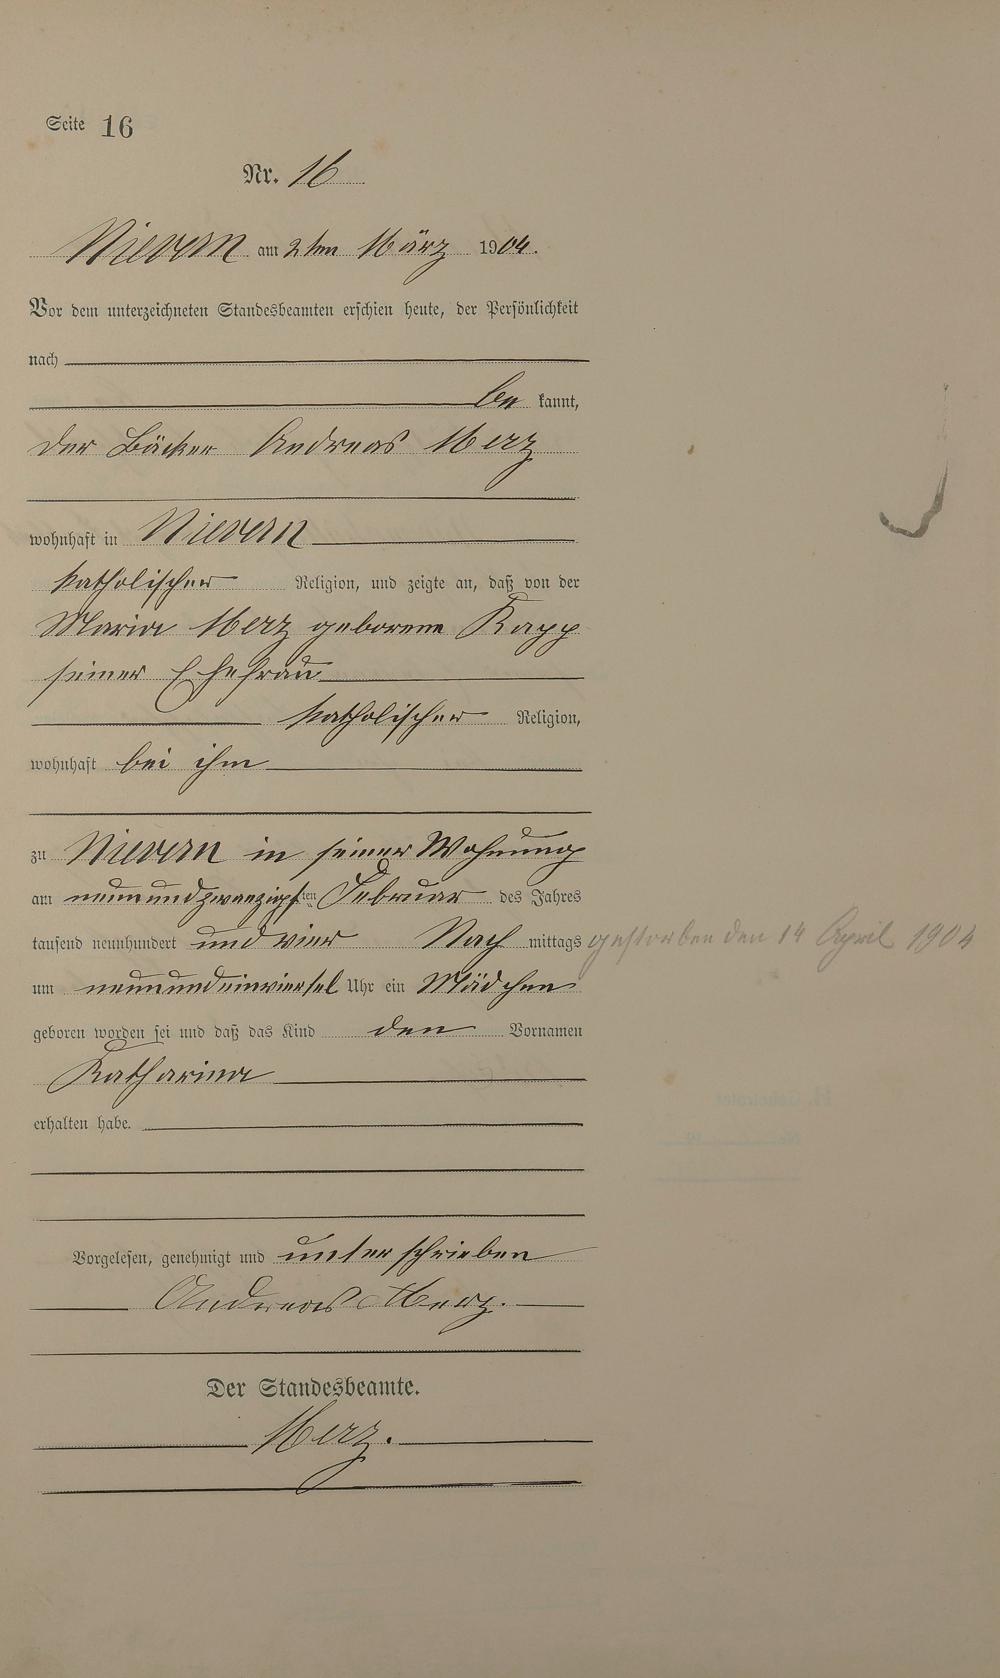 Seite 16
Nr. 16
Nievern am 2ten März 1904.
Vor dem unterzeichneten Standesbeamten erschien heute, der Persönlichkeit
nach
be kannt,
der Bäcker Andreas Merz
wohnhaft in Nievern
katholischer Religion, und zeigte an, daß von der
Maria Merz geborene Kapp
seiner Ehefrau
katholischer Religion,
wohnhaft bei ihm
zu Nievern in seiner Wohnung
am neunundzwanzigsten Februar des Jahres
tausend neunhundert und vier Nach mittags gestorben den 14 April 1904
um neunundeinviertel Uhr ein Mädchen
geboren worden sei und daß das Kind den Vornamen
Katharina
erhalten habe.
Vorgelesen, genehmigt und unterschrieben
Andreas Merz.
Der Standesbeamte.
Merz.